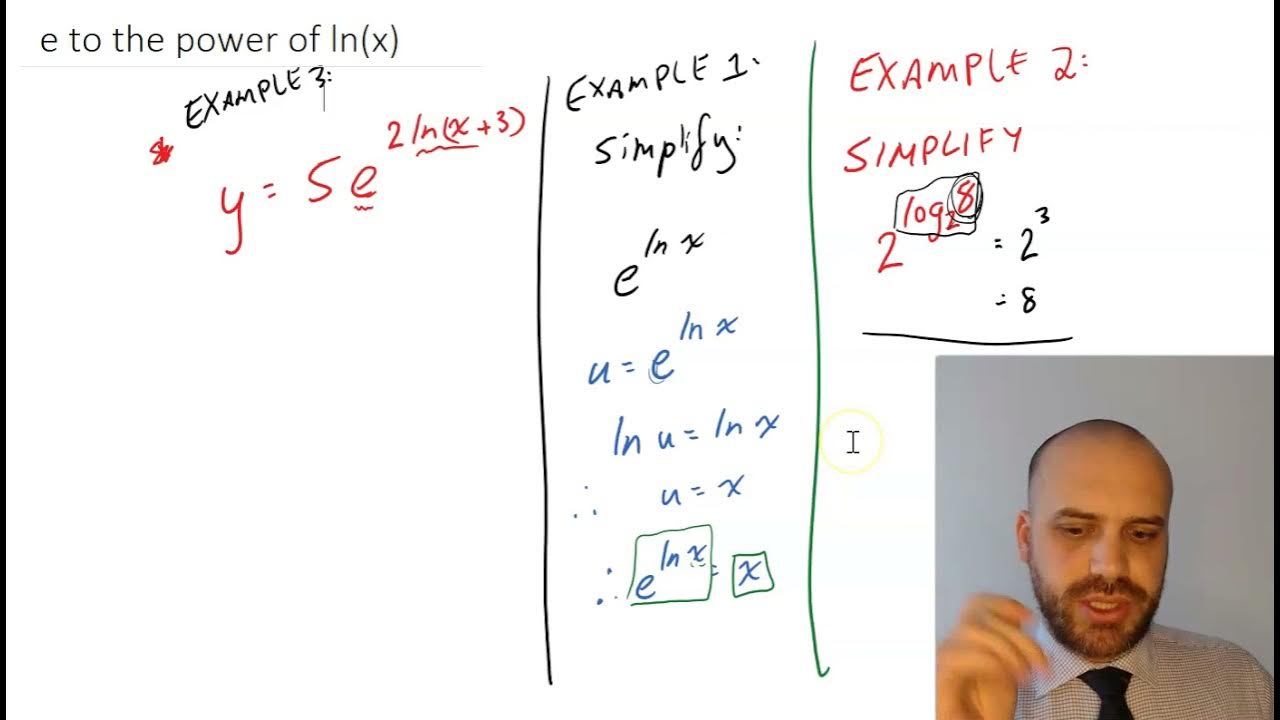 e to the power of ln(x)
EXAMPLE 3:
y = 5e^{2 ln(x+3)}
EXAMPLE 1:
simplify:
e^{ln x}
u = e^{ln x}
ln u = ln x
∴ u = x
∴ e^{ln x} = x
EXAMPLE 2:
SIMPLIFY
2^{log₂8} = 2³
= 8